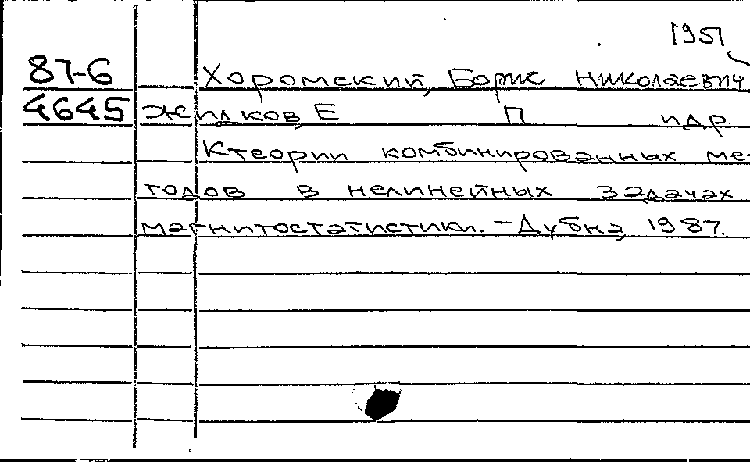 1951
87-6 Хоромский, Борис Николаевич
4645 Жидков, Е П идр
К теории комбинированных ме-
тодов в нелинейных задачах
магнитостатистики. - Дубна, 1987.